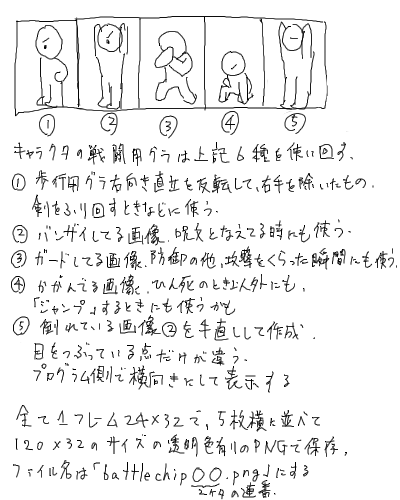 ① ② ③ ④ ⑤
キャラクタの戦闘用グラは上記6種を使い回す.
① 歩行用グラ右向き直立を反転して,右手を除いたもの.
剣をふり回すときなどに使う.
② バンザイしてる画像.呪文となえてる時にも使う.
③ ガードしてる画像.防御の他,攻撃をくらった瞬間にも使う
④ かがんでる画像.ひん死のとき以外にも,
「ジャンプ」するときにも使うかも
⑤ 倒れている画像②を手直しして作成.
目をつぶっている点だけが違う.
プログラム側で横向きにして表示する
全て1フレーム24×32で,5枚横に並べて
120×32のサイズの透明色有りのPNGで保存,
ファイル名は「battlechip○○.png」にする
2ケタの連番.